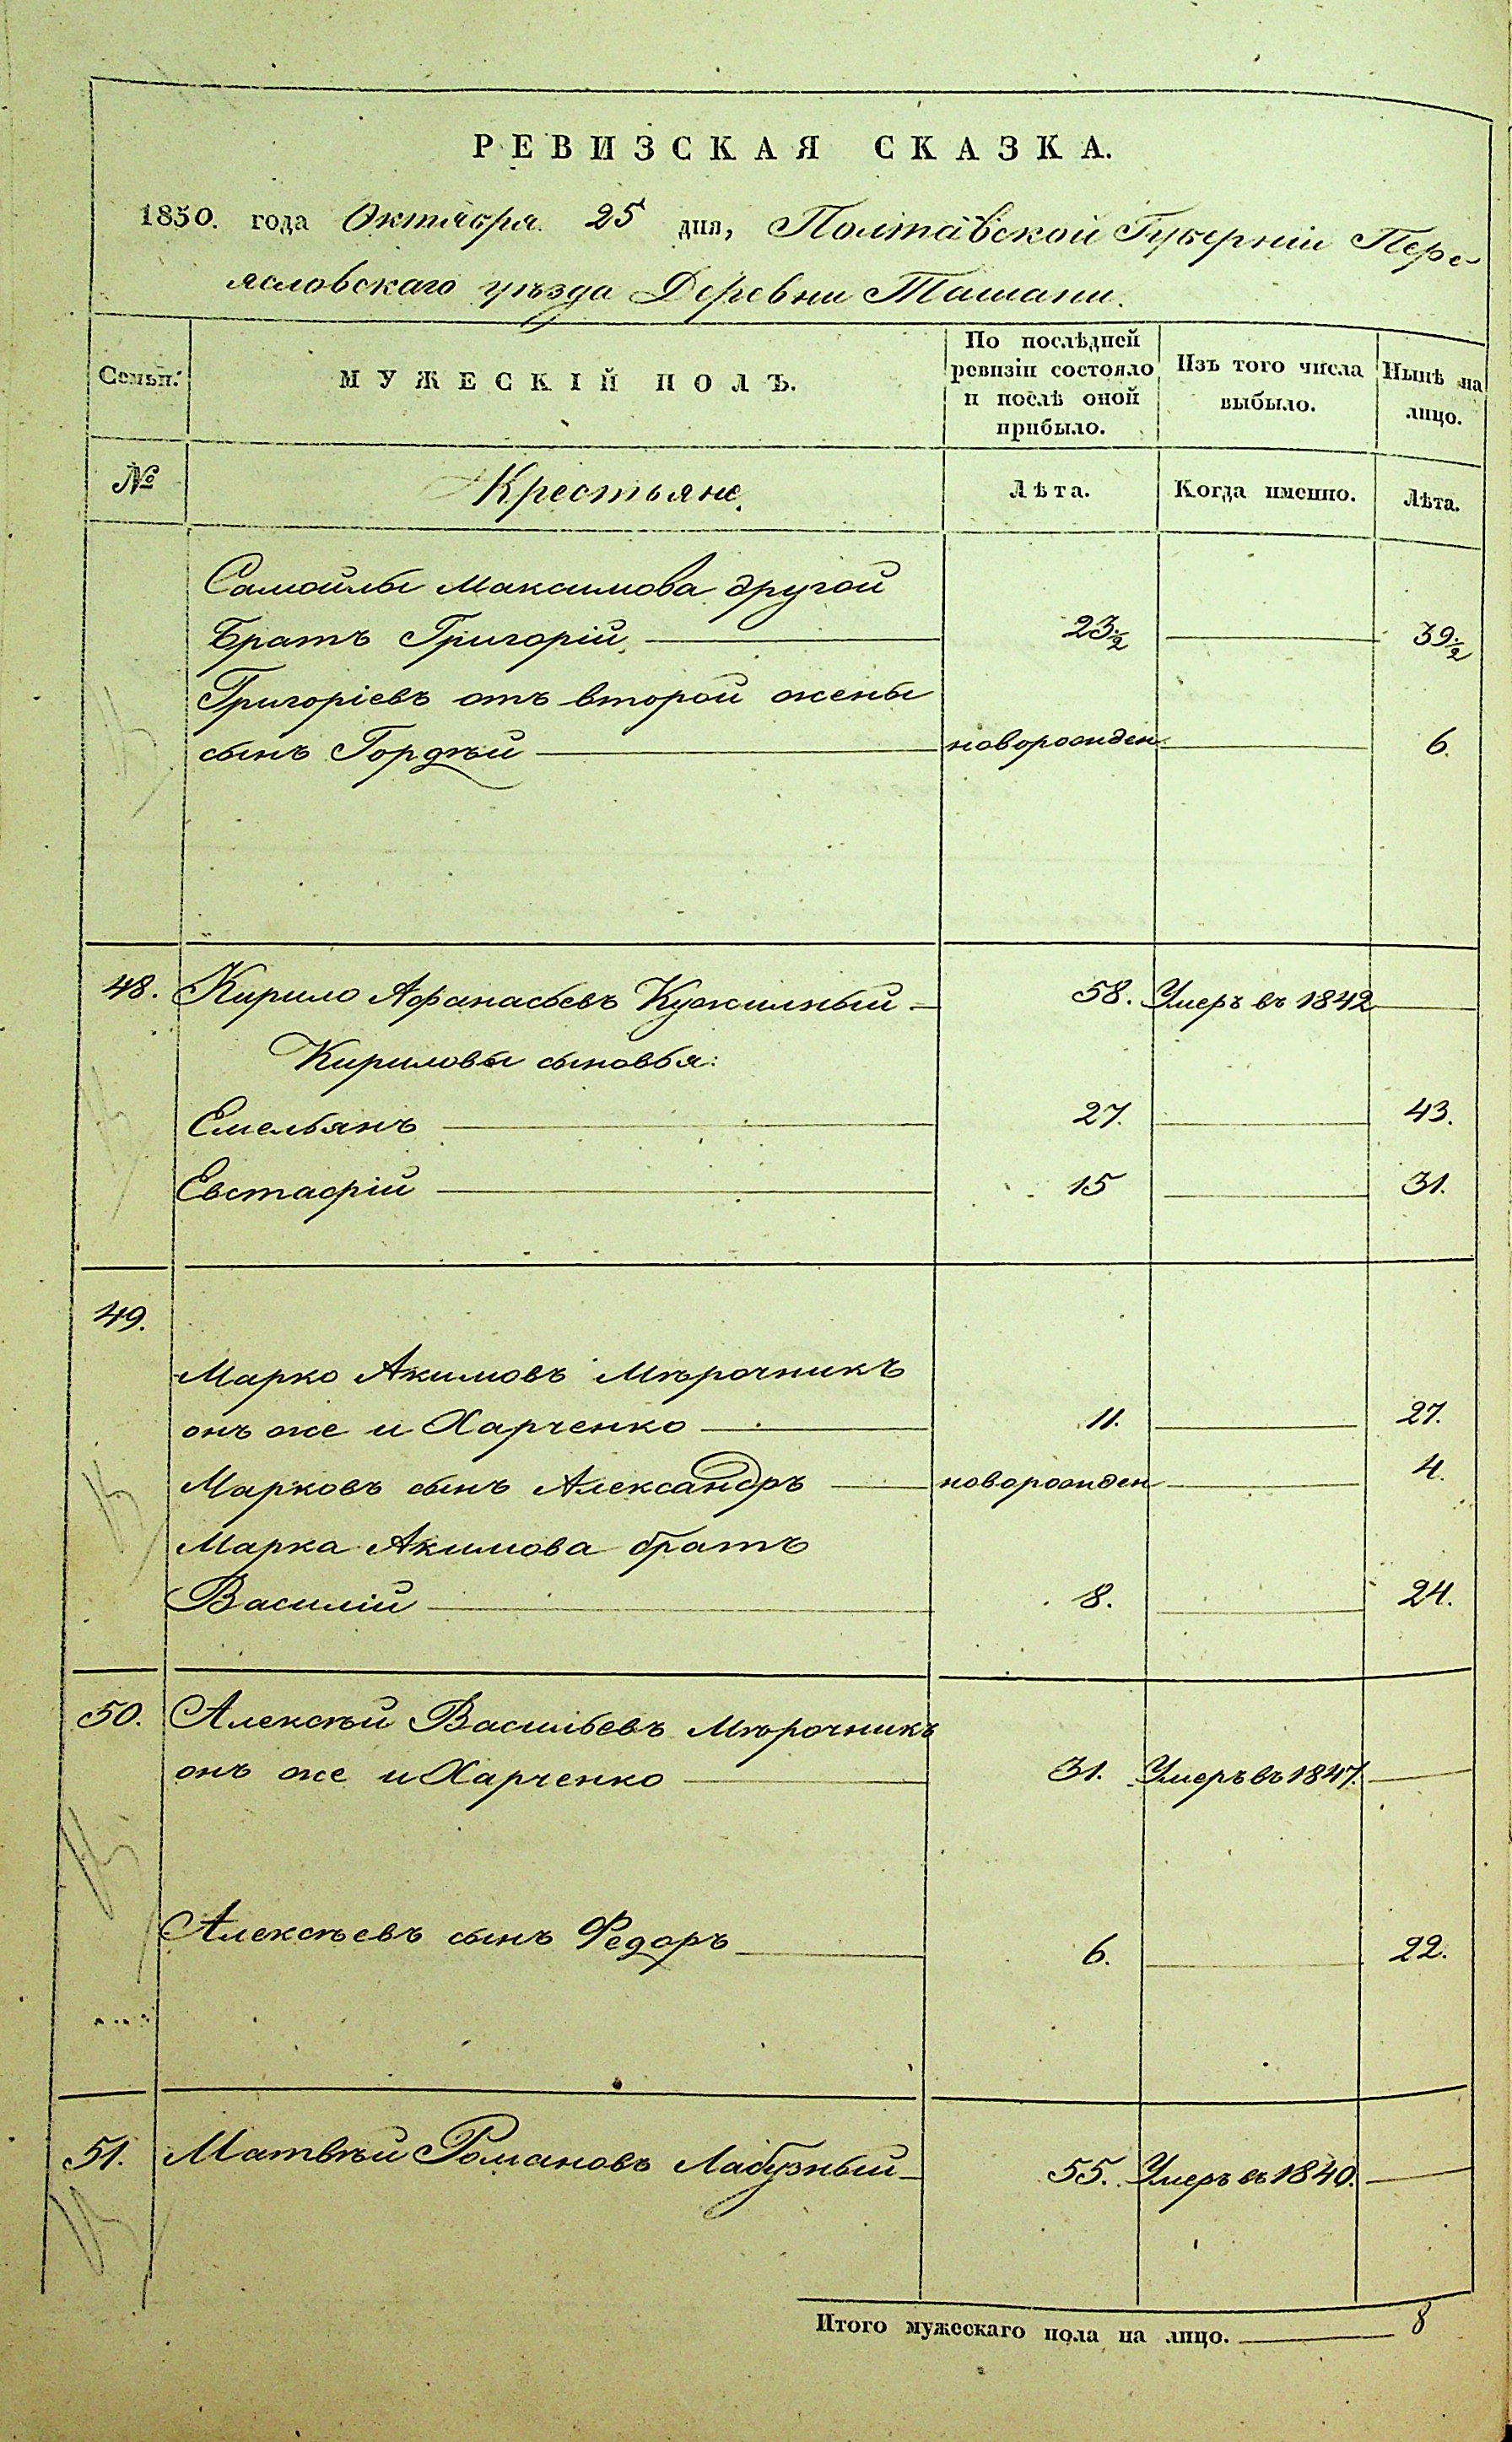 РЕВИЗСКАЯ СКАЗКА.
1850. года Октября 25 дня, Полтавской Губерніи Пере-
ясловскаго уѣзда Деревни Ташани.
Семьи. МУЖЕСКІЙ ПОЛЪ. По послѣдней ревизіи состояло и послѣ оной прибыло. Изъ того числа выбыло. Нынѣ на лицо.
№ Крестьяне. Лѣта. Когда именно. Лѣта.
Самойлы Максимова другой
братъ Григорій 23½ 39½
Григоріевъ отъ второй жены
сынъ Гордѣй новорожден 6.
48. Кирило Афанасьевъ Кужилный 58. Умеръ въ 1842
Кириловы сыновья:
Емельянъ 27. 43.
Евстафій 15 31.
49.
Марко Акимовъ Мѣрочникъ
онъ же и Харченко 11. 27.
Марковъ сынъ Александръ новорожден 4.
Марка Акимова братъ
Василій 8. 24.
50. Алексѣй Васильевъ Мѣрочникъ
онъ же и Харченко 31. Умеръ въ 1847.
Алексѣевъ сынъ Федоръ 6. 22.
51. Матвѣй Романовъ Лабузный 55. Умеръ въ 1840.
Итого мужескаго пола на лицо. 8